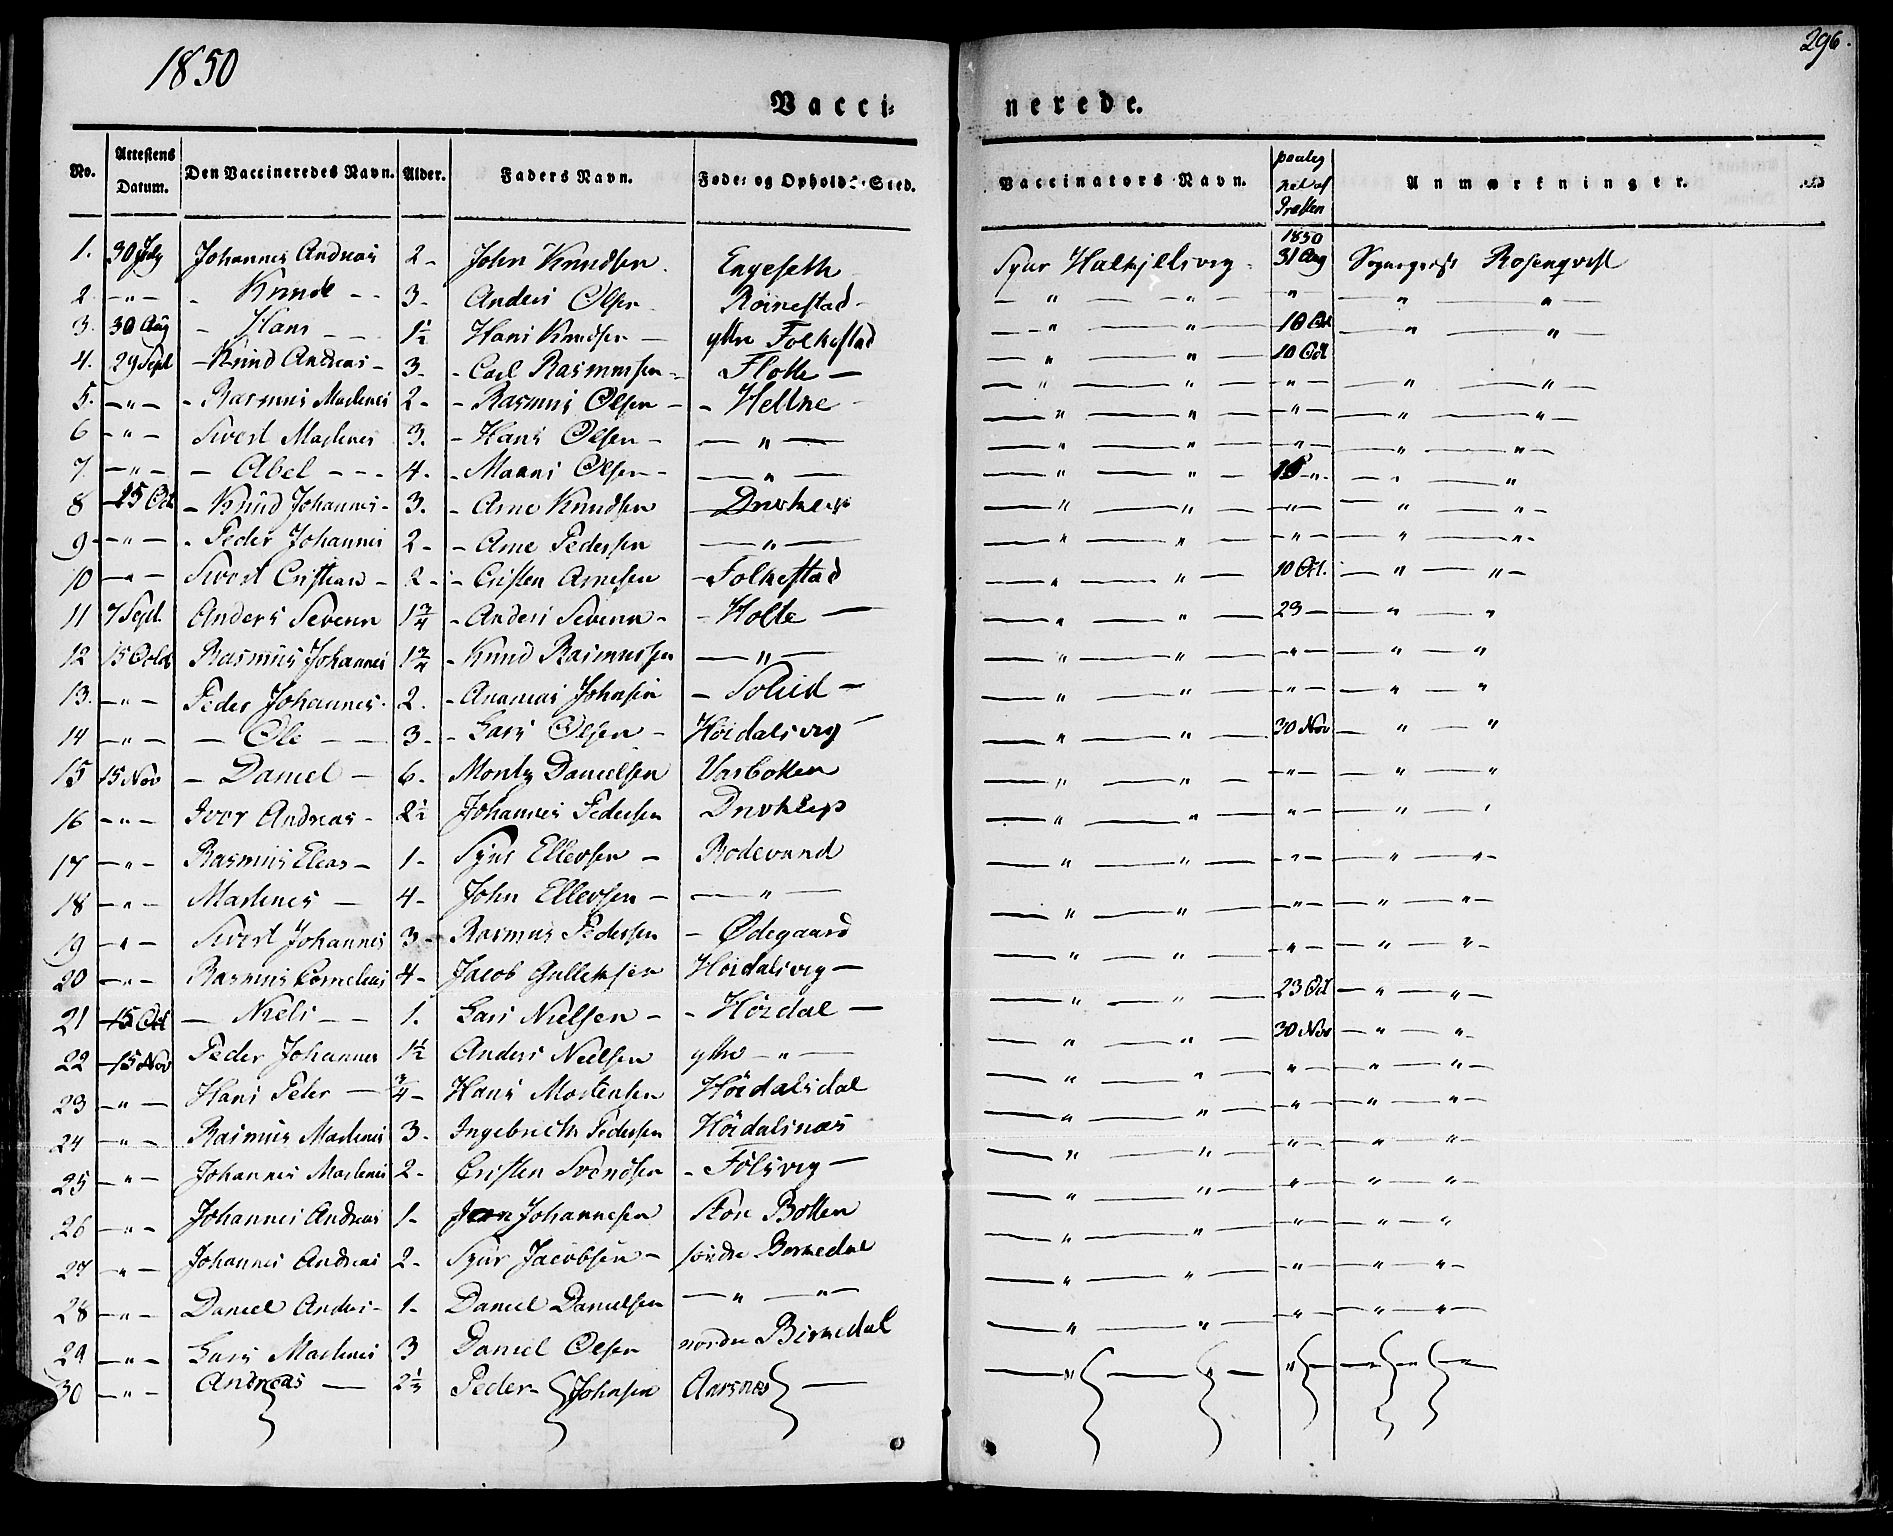 1850
296.
Vacci=
nerede.
No. Attestens Datum. Den Vaccineredes Navn. Alder. Faders Navn. Føde= og Opholds=Sted.
Vaccinators Navn. Anmærkninger.
1. 30 July Johannes Andreas 2 - John Knudsen Engeseth Sjur Halkjelsvig 1850 31 Aug Rosenqvist
2 - " - - Knude - - 3 - Anders Olsen Roinestad - " - " - " - " - " -
3. 30 Aug - Hans - 1½ Hans Knudsen - yttre Folkestad - " - " - 10 Oct - " - " -
4. 29 Sept - Knud Andreas - 3 - - Carl Rasmussen - - Flotte - - " - " - 10 Oct
5. - " - - Rasmus Martenes 2 - - Rasmus Olsen - - Heltne - " - " - - " - - " - " -
6 - " - Sivert Martenes 3. - Hans Olsen - - " - - " - " - - " - - " - " -
7. - " - - Abel - - - 4. - Maans Olsen - - " - - " - " - - " - - " - " -
8 15 Oct - Knud Johannes - 3. - Arne Knudsen - " - " - 15 - " - - " - "
9 - " - - Peder Johannes 2 - - Arne Pedersen - " - - " - " - - " - - " - " -
10 - " - Sivert Cristian - 2 - - Cristen Arnesen - Folkestad - " - " - 10 Oct. - " - " -
11 7 Sept. Anders Severin 1¾ - Anders Severin - - Holte - - " - " - 23 - - " - "
12 15 Octob Rasmus Johannes 1¾ - Knud Rasmussen - " - - " - " - - " - - " - "
13. - " - Peder Johannes - 2. - Ananias Johnsen - - " - " - - " - - " - "
14 - " - - Ole - - 3 - - Lars Olsen - Höidalsvig - - " - " - 30 Nov - " - "
15 15 Nov - Daniel - 6 - Danielsen Varbotten - " - " - - " - - " - "
16 - " - Iver Andreas - 2½ Johannes Pedersen - " - " - " - - " - "
17 - " - Rasmus Elias - 1 - Sjur Ellevsen - Rodevand - " - " - - " - - " - " -
18 - " - Martenes - 4 - John Ellevsen - - " - - " - " - - " - - " - " -
19 - " - Sivert Johannes 3 - Rasmus Pedersen - Ødegaard - " - " - - " - - " - " -
20 - " - Rasmus Cornelius 4 - Jacob Gulleksen Höidalsvig - - " - " - 23 Oct - " - " -
21 15 Oct - Niels - - 1. Lars Nielsen - - Höidal - - " - " - 30 Nov - " - " -
22 15 Nov Peder Johannes 1½ Anders Nielsen yttre - " - - " - " - " - " - " -
23 - " - Hans Peter - ¾ - Hans Mortensen Höidalsdal - " - " - - " - - " - " -
24 - " - Rasmus Martenes 3 - Ingebrigth Pedersen Höidalsnæs - " - " - - " - - " - "
25 - " - Johannes Martenes 2 - Cristen Svendsen - Fölsvig - - " - " - - " - - " - "
26 - " - Johannes Andreas 1 - Johannesen Store Botten - " - " - " - - " - "
27 - " - Johannes Andreas 2 - Sjur Jacobsen - söndre Birkedal - " - " - - " - - " - " -
28 - " - Daniel Anders - 1 - Daniel Danielsen - " - " - - " - " - - " - - " - " -
29 - " - Lars Martenes 3 Daniel Olsen nordre Birkedal
30 - " - Andreas - 2½ Peder - Johnsen Aarsnes -